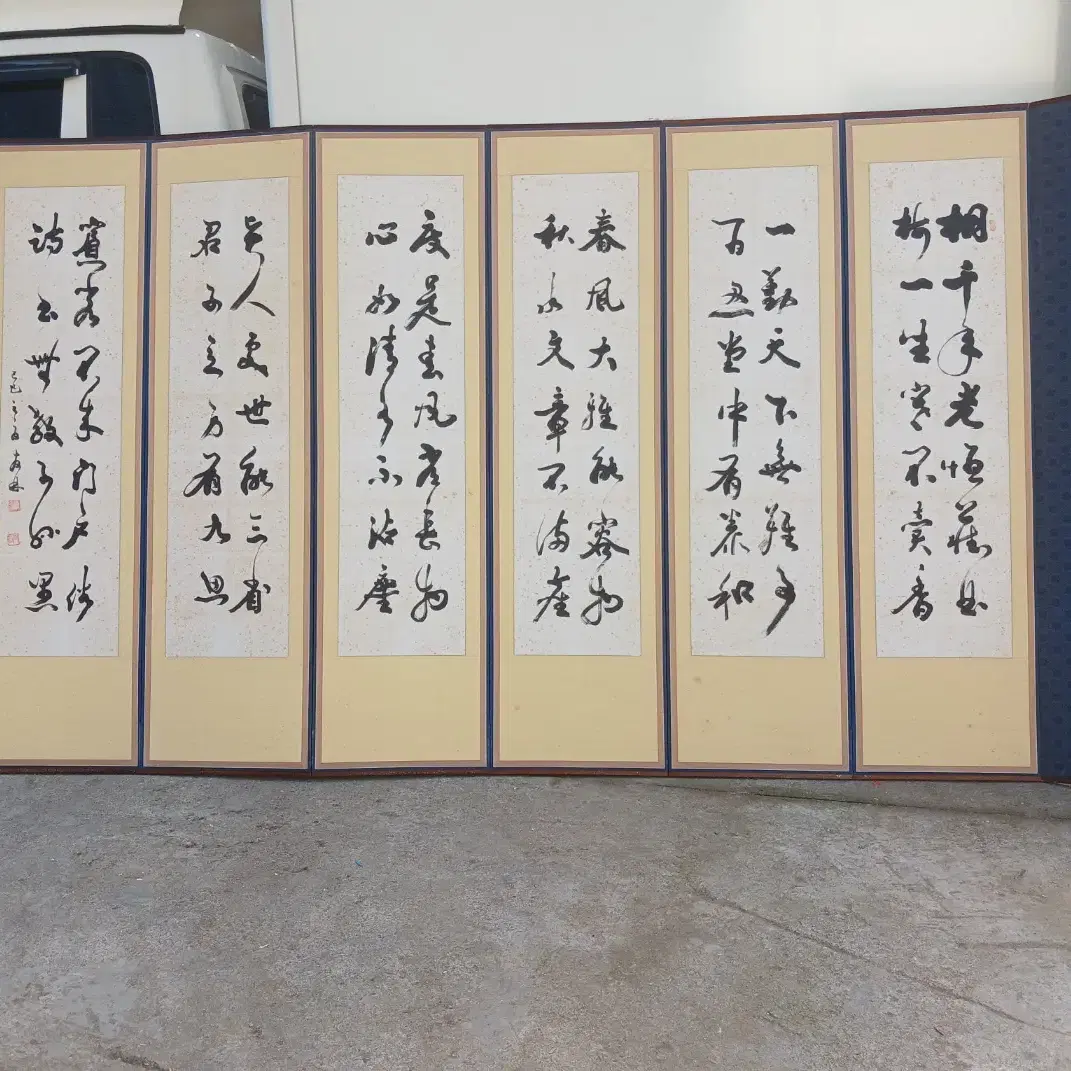 桐千年老恒藏曲
梅一生寒不賣香
一勤天下無難事
百忍堂中有泰和
春風大雅能容物
秋水文章不染塵
度是春風常長物
心如清水不沾塵
吉人處世能三省
君子立身有九思
賓客不來門戶俗
詩書無教子孫愚